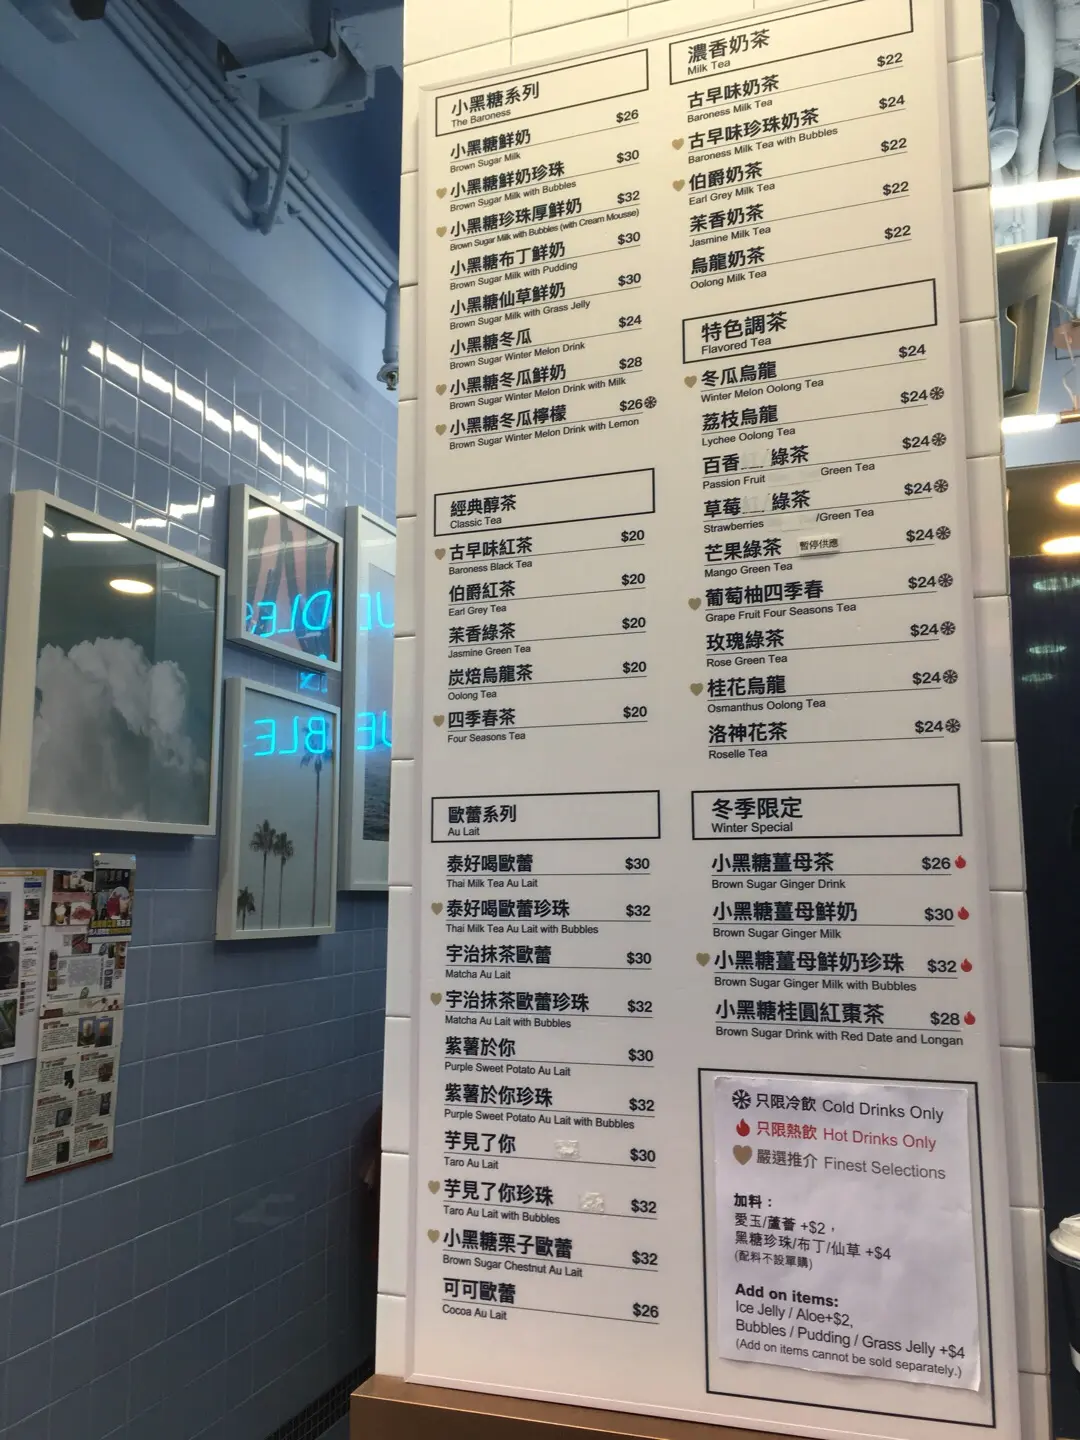 小黑糖系列
The Baroness
小黑糖鮮奶 $26
Brown Sugar Milk
小黑糖鮮奶珍珠 $30
Brown Sugar Milk with Bubbles
小黑糖珍珠厚鮮奶 $32
Brown Sugar Milk with Bubbles (with Cream Mousse)
小黑糖布丁鮮奶 $30
Brown Sugar Milk with Pudding
小黑糖仙草鮮奶 $30
Brown Sugar Milk with Grass Jelly
小黑糖冬瓜 $24
Brown Sugar Winter Melon Drink
小黑糖冬瓜鮮奶 $28
Brown Sugar Winter Melon Drink with Milk
小黑糖冬瓜檸檬 $26
Brown Sugar Winter Melon Drink with Lemon
經典醇茶
Classic Tea
古早味紅茶 $20
Baroness Black Tea
伯爵紅茶 $20
Earl Grey Tea
茉香綠茶 $20
Jasmine Green Tea
炭焙烏龍茶 $20
Oolong Tea
四季春茶 $20
Four Seasons Tea
歐蕾系列
Au Lait
泰好喝歐蕾 $30
Thai Milk Tea Au Lait
泰好喝歐蕾珍珠 $32
Thai Milk Tea Au Lait with Bubbles
宇治抹茶歐蕾 $30
Matcha Au Lait
宇治抹茶歐蕾珍珠 $32
Matcha Au Lait with Bubbles
紫薯於你 $30
Purple Sweet Potato Au Lait
紫薯於你珍珠 $32
Purple Sweet Potato Au Lait with Bubbles
芋見了你 $30
Taro Au Lait
芋見了你珍珠 $32
Taro Au Lait with Bubbles
小黑糖栗子歐蕾 $32
Brown Sugar Chestnut Au Lait
可可歐蕾 $26
Cocoa Au Lait
濃香奶茶
Milk Tea
古早味奶茶 $22
Baroness Milk Tea
古早味珍珠奶茶 $24
Baroness Milk Tea with Bubbles
伯爵奶茶 $22
Earl Grey Milk Tea
茉香奶茶 $22
Jasmine Milk Tea
烏龍奶茶 $22
Oolong Milk Tea
特色調茶
Flavored Tea
冬瓜烏龍 $24
Winter Melon Oolong Tea
荔枝烏龍 $24
Lychee Oolong Tea
百香 / 綠茶 $24
Passion Fruit Green Tea
草莓 / 綠茶 $24
Strawberries /Green Tea
芒果綠茶 暫停供應 $24
Mango Green Tea
葡萄柚四季春 $24
Grape Fruit Four Seasons Tea
玫瑰綠茶 $24
Rose Green Tea
桂花烏龍 $24
Osmanthus Oolong Tea
洛神花茶 $24
Roselle Tea
冬季限定
Winter Special
小黑糖薑母茶 $26
Brown Sugar Ginger Drink
小黑糖薑母鮮奶 $30
Brown Sugar Ginger Milk
小黑糖薑母鮮奶珍珠 $32
Brown Sugar Ginger Milk with Bubbles
小黑糖桂圓紅棗茶 $28
Brown Sugar Drink with Red Date and Longan
只限冷飲 Cold Drinks Only
只限熱飲 Hot Drinks Only
嚴選推介 Finest Selections
加料：
愛玉/蘆薈 +$2，
黑糖珍珠/布丁/仙草 +$4
(配料不設單購)
Add on items:
Ice Jelly / Aloe+$2,
Bubbles / Pudding / Grass Jelly +$4
(Add on items cannot be sold separately.)